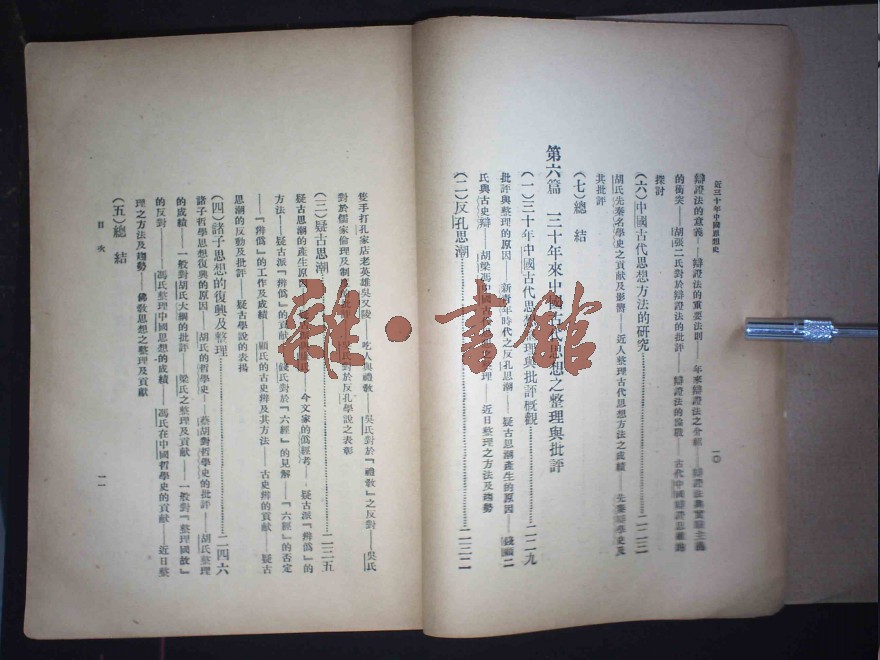 近三十年中國思想史
一〇
辯證法的意義——辯證法的重要法則——年來辯證法之介紹——辯證法與實驗主義
的衝突——胡張二氏對於辯證法的批評——辯證法的論戰——古代中國辯證思想的
探討
(六)中國古代思想方法的研究
胡氏先秦名學史之貢獻及影響——近人整理古代思想方法之成績——先秦辯學史及
其批評
(七)總結
第六篇 三十年來中國古代思想之整理與批評
(一)三十年中國古代思想整理與批評概觀 二二九
批評與整理的原因——新青年時代之反孔思潮——疑古思潮產生的原因——錢顧二
氏與古史辯——胡梁馮中國古 整理——近日整理之方法及趨勢
(二)反孔思潮 二三二
隻手打孔家店老英雄吳又陵——吃人與禮教——吳氏對於「禮教」之反對——吳氏
對於儒家倫理及制 氏對於反孔學說之表彰
(三)疑古思潮 二三五
疑古思潮的產生原因 今文家的僞經考——疑古派「辨僞」的
方法——疑古派「辨僞」的貢獻——錢氏對於「六經」的見解——「六經」的否定
——「辨僞」的工作及成績——顧氏的古史辨及其方法——古史辨的貢獻——疑古
思潮的反動及批評——疑古學說的表揚
(四)諸子思想的復興及整理 二四六
諸子哲學思想復興的原因——胡氏的哲學史——蔡胡對哲學史的批評——胡氏整理
的成績——一般對胡氏大綱的批評——梁氏之整理及貢獻——一般對「整理國故」
的反對——馮氏整理中國思想的成績——馮氏在中國哲學史的貢獻——近日整
理之方法及趨勢——佛教思想之整理及貢獻
(五)總結
目次
一一
雜·書館